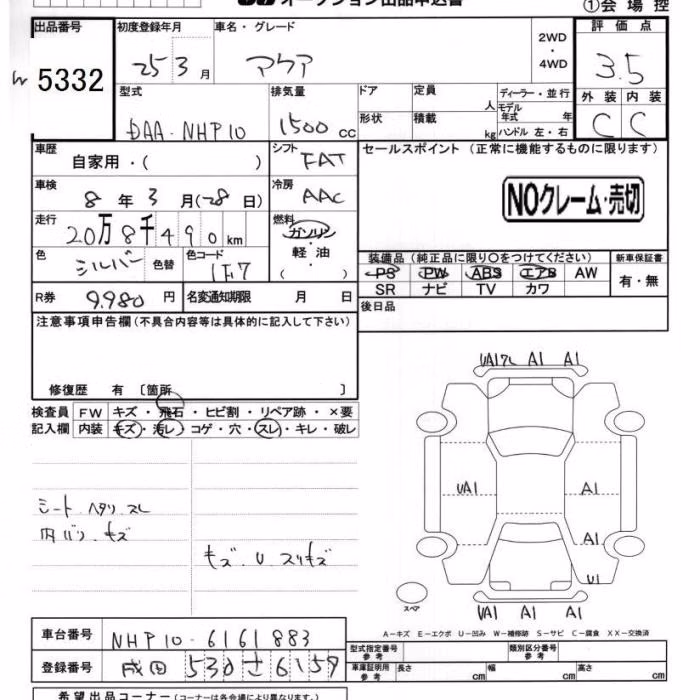 オークション出品申込書
①会場控
出品番号
5332
初度登録年月
25 3 月
車名・グレード
アクア
2WD
・
4WD
評価点
3.5
外装 内装
C C
型式
DAA-NHP10
排気量
1500 cc
ドア
形状
定員
人
積載
kg
ディーラー・並行
モデル年式 年
ハンドル 左・右
車歴
自家用・( )
シフト
FAT
セールスポイント (正常に機能するものに限ります)
NOクレーム・売切
車検
8 年 3 月(28日)
冷房
AAC
走行
20万8千490km
燃料
ガソリン
・
軽油
( )
色
シルバー
色替
色コード
1F7
装備品 (純正品に限り○をつけてください)
PS PW ABS エアB AW
SR ナビ TV カワ
新車保証書
有・無
R券
9,980 円
名変通知期限 月 日
後日品
注意事項申告欄 (不具合内容等は具体的に記入して下さい)
修復歴 有 [箇所 ]
検査員 記入欄
FW キズ・飛石・ヒビ割・リペア跡・×要
内装 キズ・汚レ・コゲ・穴・スレ・キレ・破レ
シート ヘタリ スレ
内バリ キズ
キズ U スリキズ
UA1 A1 A1
UA1 A1
A1
U1
スペア
UA1 A1 A1
A-キズ E-エクボ U-凹み W-補修跡 S-サビ C-腐食 XX-交換済
車台番号
NHP10-6161883
登録番号
成田 530 さ 6159
型式指定番号
参考
類別区分番号
車庫証明用
参考
長さ cm 幅 cm 高さ cm
希望出品コーナー (コーナーは各会場により異なります。)